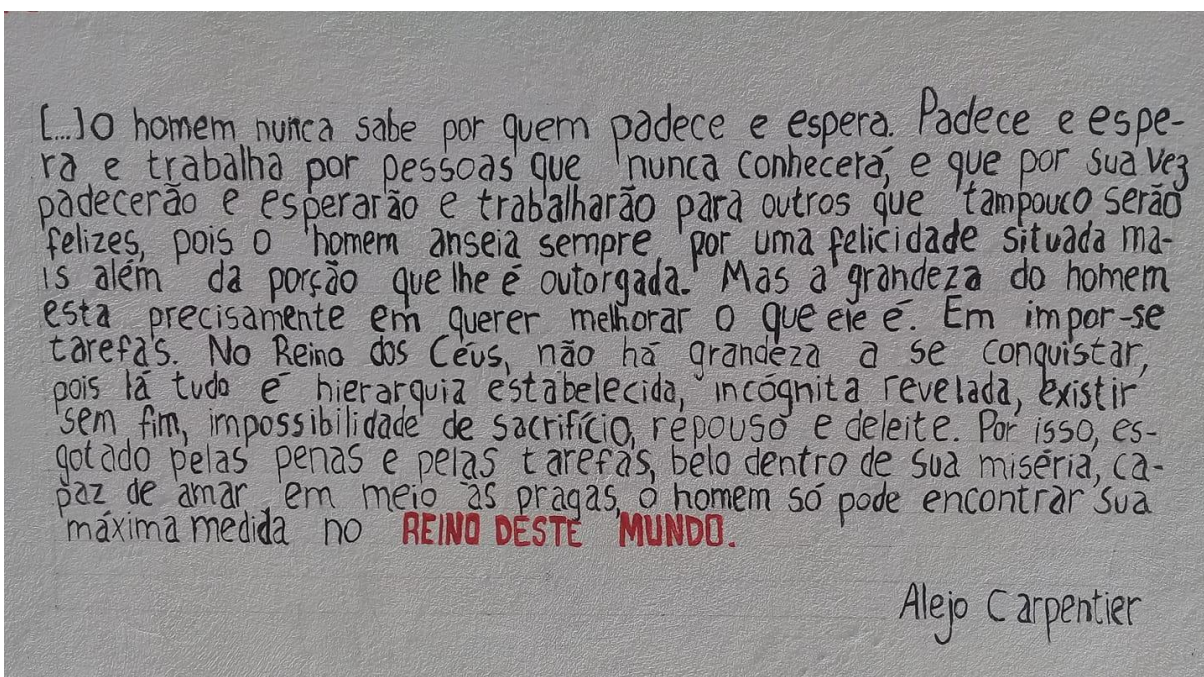 [...]O homem nunca sabe por quem padece e espera. Padece e espe-
ra e trabalha por pessoas que nunca conhecerá, e que por sua vez
padecerão e esperarão e trabalharão para outros que tampouco serão
felizes, pois o homem anseia sempre por uma felicidade situada ma-
is além da porção que lhe é outorgada. Mas a grandeza do homem
esta precisamente em querer melhorar o que ele é. Em impor-se
tarefas. No Reino dos Céus, não há grandeza a se conquistar,
pois lá tudo é hierarquia estabelecida, incógnita revelada, existir
sem fim, impossibilidade de sacrifício, repouso e deleite. Por isso, es-
gotado pelas penas e pelas tarefas, belo dentro de sua miséria, ca-
paz de amar em meio às pragas, o homem só pode encontrar sua
máxima medida no REINO DESTE MUNDO.
Alejo Carpentier